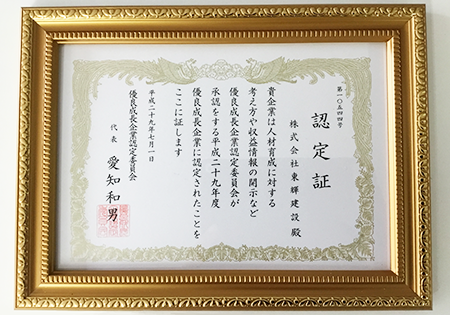 第一〇五四四号
認定証
株式会社東輝建設 殿
貴企業は人材育成に対する
考え方や収益情報の開示など
優良成長企業認定委員会が
承認をする平成二十九年度
優良成長企業に認定されたことを
ここに証します
平成二十九年七月一日
優良成長企業認定委員会
代表 愛知和男